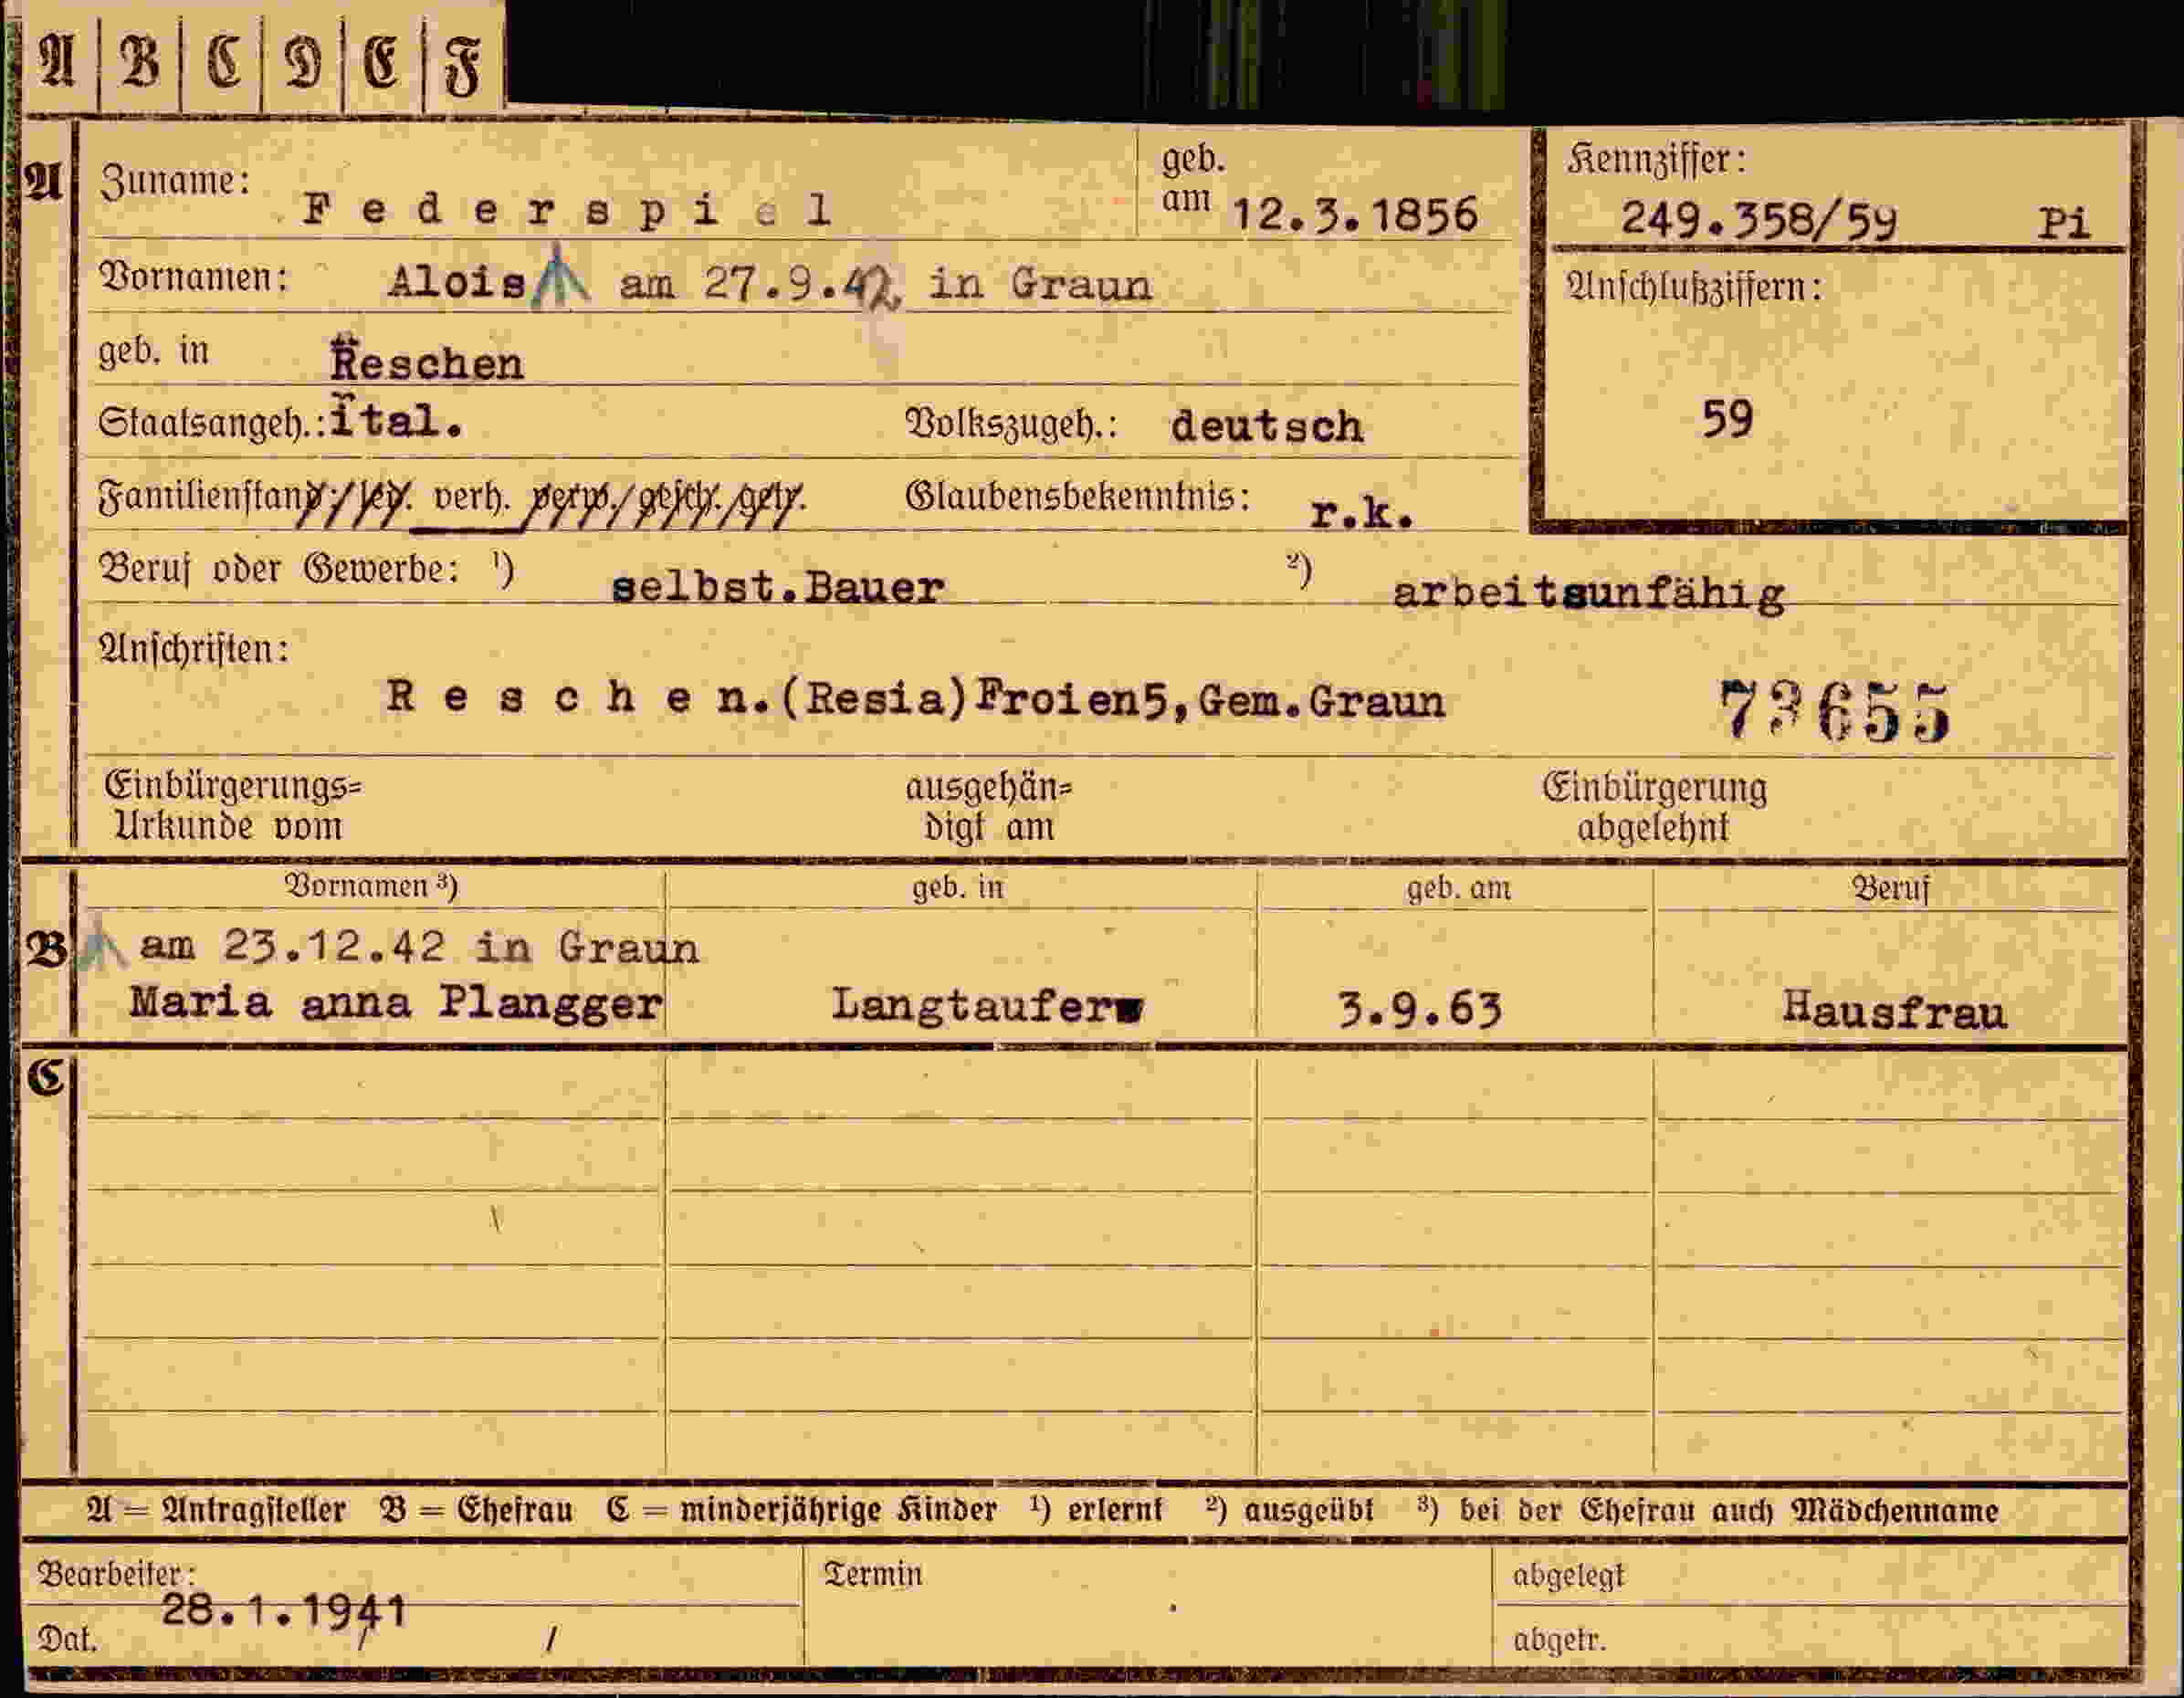 A B C D E F
A Zuname: Federspiel geb. am 12.3.1856 Kennziffer: 249.358/59 Pi
Vornamen: Alois am 27.9.42 in Graun Anschlußziffern:
geb. in Reschen
Staatsangeh.: ital. Volkszugeh.: deutsch 59
Familienstand: led. verh. verw. gesch. getr. Glaubensbekenntnis: r.k.
Beruf oder Gewerbe: ¹) selbst.Bauer ²) arbeitsunfähig
Anschriften:
Reschen.(Resia)Froien5,Gem.Graun 73655
Einbürgerungs= ausgehän= Einbürgerung
Urkunde vom digt am abgelehnt
Vornamen ³) geb. in geb. am Beruf
B am 23.12.42 in Graun
Maria anna Plangger Langtaufer 3.9.63 Hausfrau
C
A = Antragsteller B = Ehefrau C = minderjährige Kinder ¹) erlernt ²) ausgeübt ³) bei der Ehefrau auch Mädchenname
Bearbeiter: Termin abgelegt
28.1.1941
Dat. abgetr.